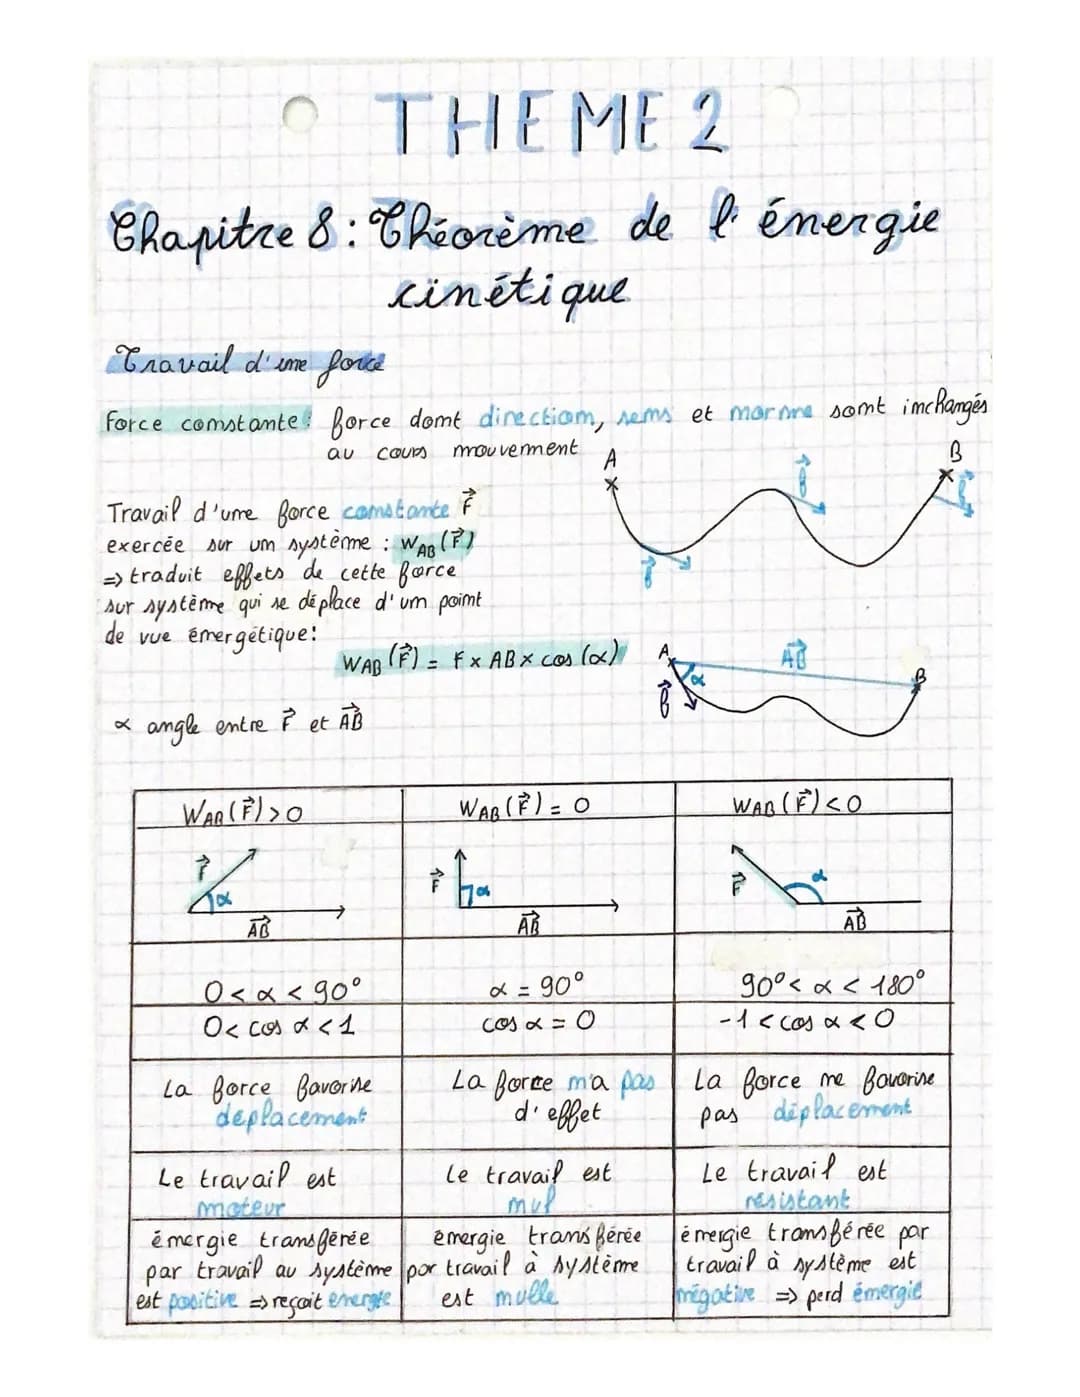 THEME 2
Chapitre 8 : Théorème de l'énergie
cinétique
Travail d'une force
Force constante : force dont direction, sens et norme sont inchangés
au cours mouvement
A
B
F
F
F
Travail d'une force constante F
exercée sur un système : WAB (F)
=> traduit effets de cette force
sur système qui se déplace d'un point
de vue énergétique :
WAB (F) = F x AB x cos (α)
A
AB
B
α
F
α angle entre F et AB
WAB (F) > 0
WAB (F) = 0
WAB (F) < 0
F α AB
F α AB
F α AB
0 < α < 90°
α = 90°
90° < α < 180°
0 < cos α < 1
cos α = 0
-1 < cos α < 0
La force favorise
déplacement
La force n'a pas
d'effet
La force ne favorise
pas déplacement
Le travail est
moteur
Le travail est
nul
Le travail est
résistant
énergie transférée
par travail au système
est positive => reçoit énergie
énergie transférée
par travail à système
est nulle
énergie transférée par
travail à système est
négative => perd énergie